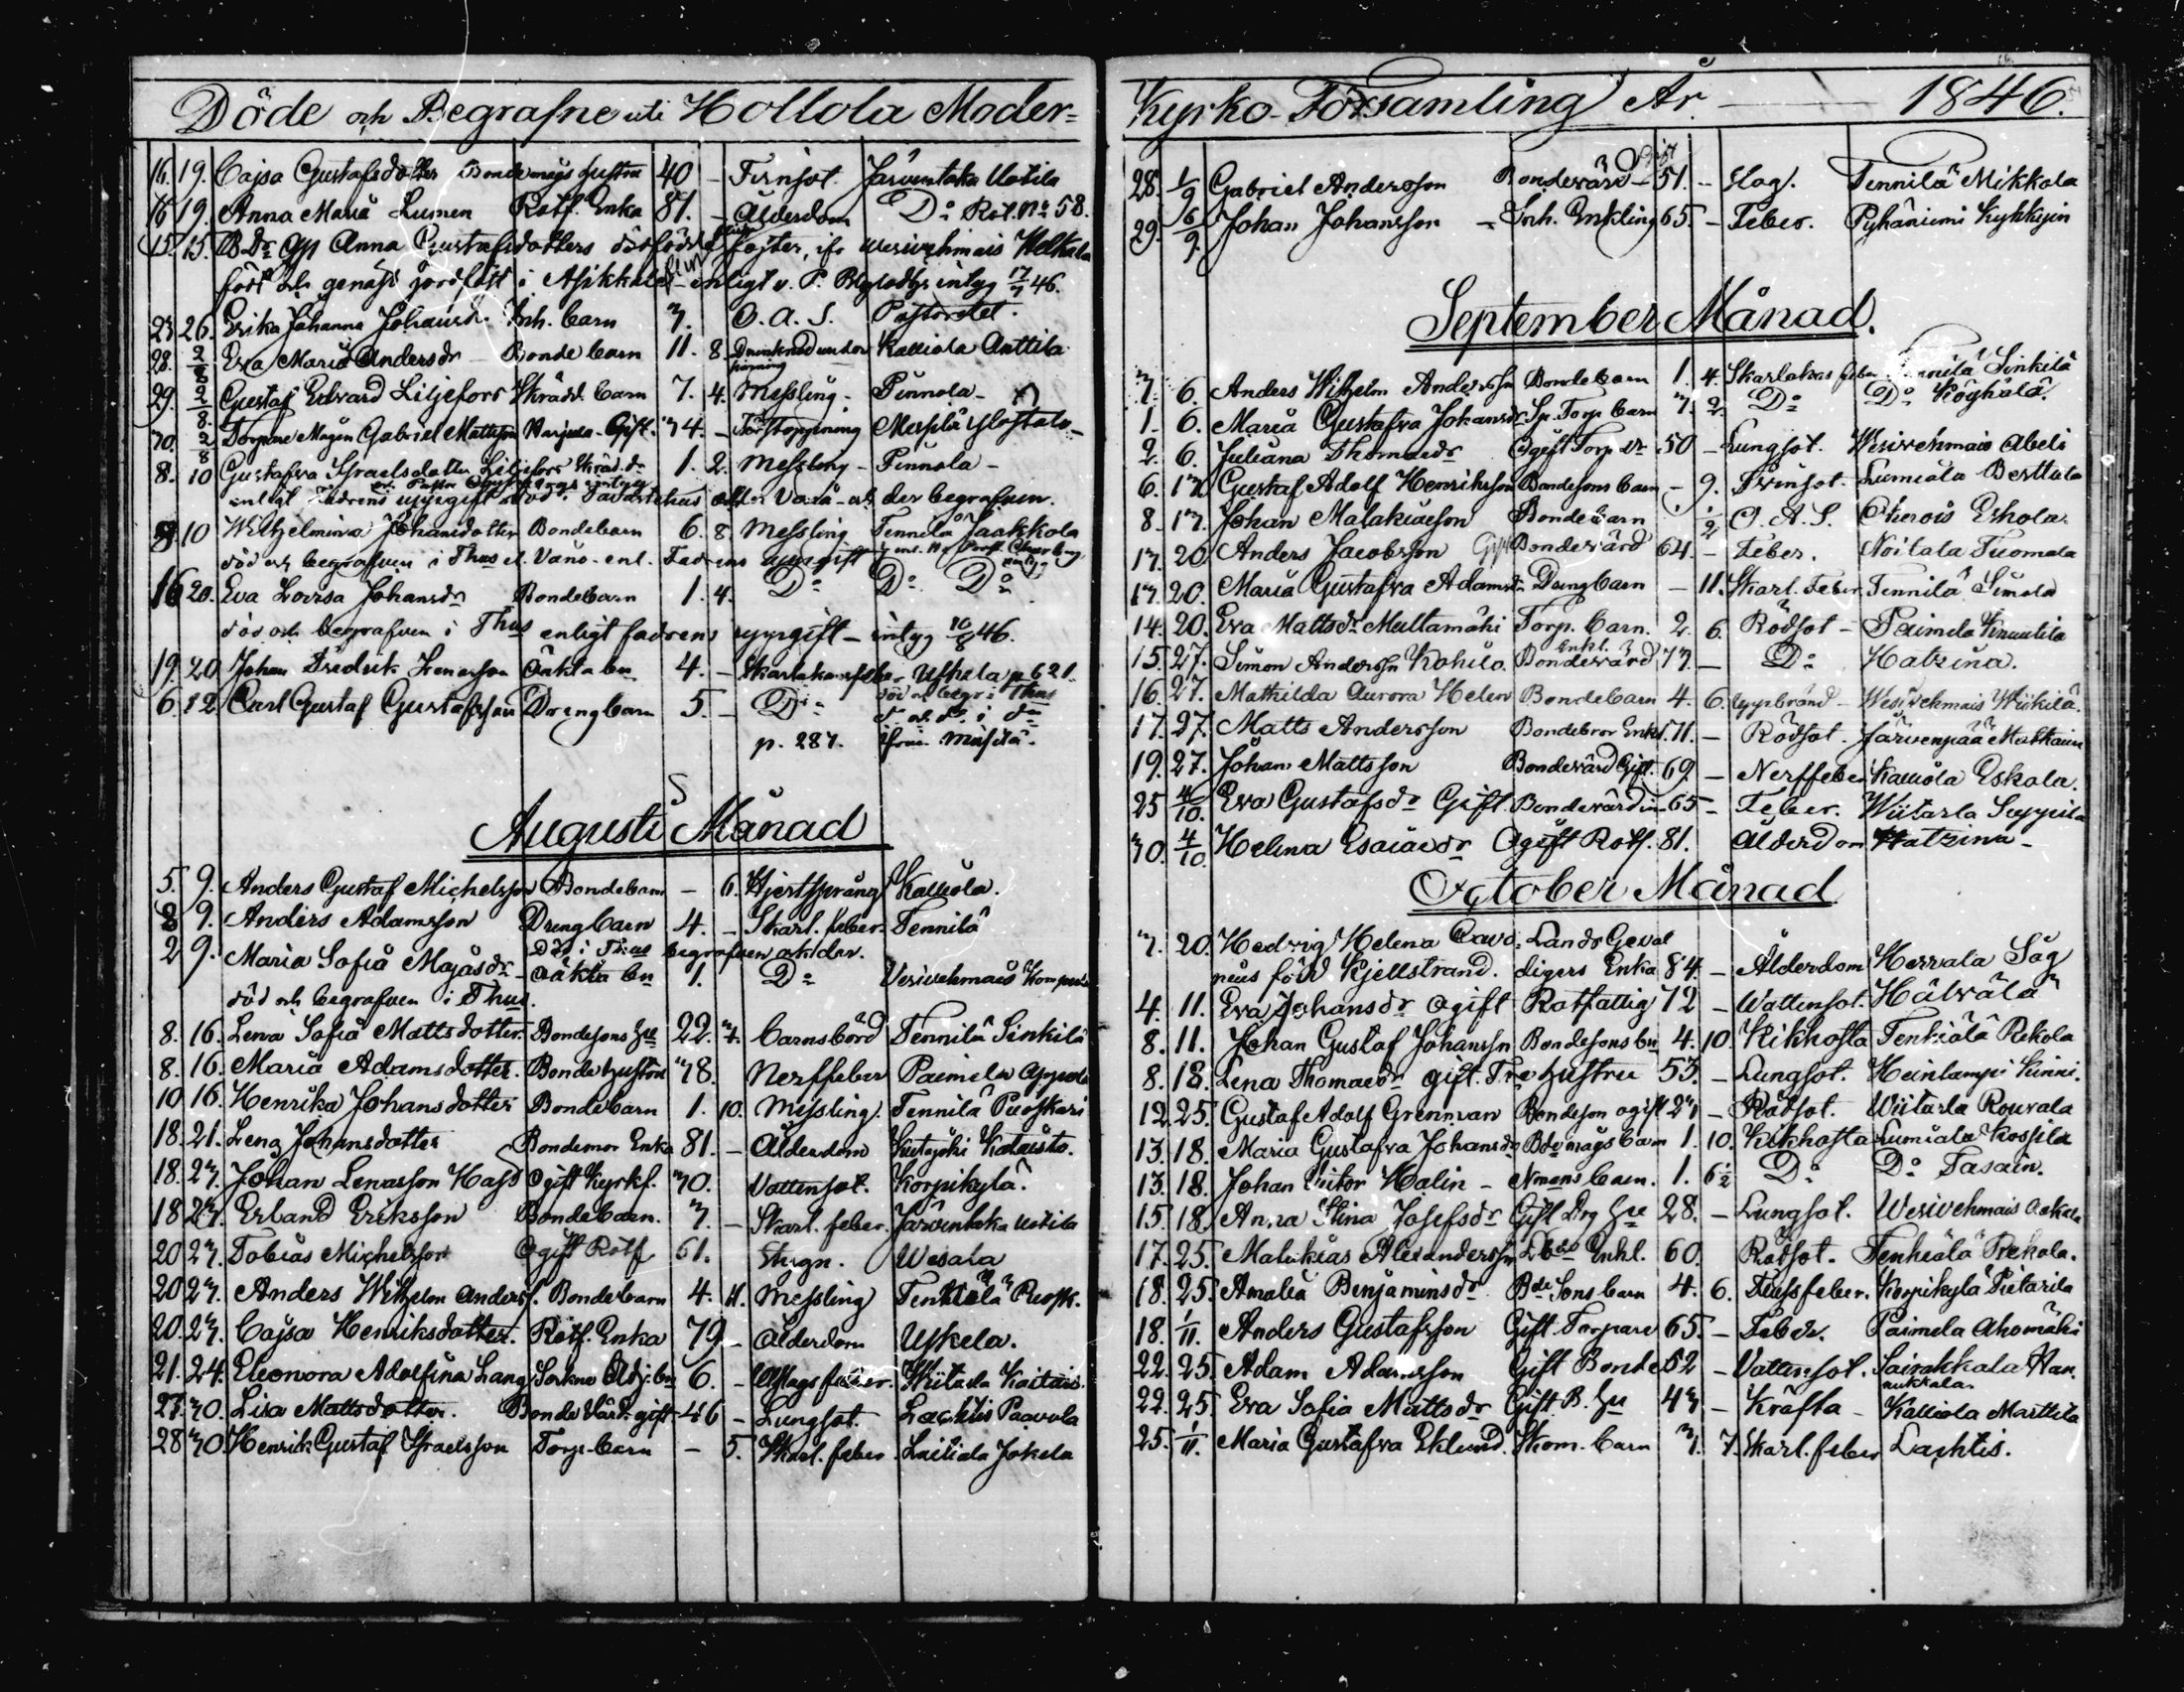 Döde och Begrafne uti Hollola Moder=
16. 19. Cajsa Gustafsdotter Bondemågs hustru 40 - Tvinsot. Järventaka Uotila
16 19. Anna Maria Lumen Rotf. Enka 87. - Ålderdom D:o Rot. No 58.
15. 15. B.Dr Ogf Anna Gustafsdotters dödfödda foster, ifr Wesivehmais
född och genast jordfäst i Asikkala enligt v. P. intyg 17/7 46.
23 26. Erika Johanna Johansdr Inh. barn 3. O. A. S. Pastorstet.
28. 2/8 Eva Maria Andersdr Bondebarn 11. 8. Drunknad under Kalliola Anttila
29. 2/8 Gustaf Edvard Liljefors Skrädd. barn 7. 4. Messling - Pennola -
30. 2/8 Torpare Mågen Gabriel Mattsson Harjula - Gift. 34. - Förstoppning
8. 10 Gustafva Israelsdotter Liljefors Skräd. dr 1. 2. Messling - Pennola -
enligt Fadrens uppgift död i Tavastehus och der begrafven.
8. 10 Wilhelmina Johansdotter Bondebarn 6. 8. Messling Tennilä Jaakkola
död och begrafven i Thus el. Vånå - enl. Fadrens uppgift
16 20. Eva Lovisa Johansdr Bondebarn 1. 4. D:o D:o D:o
död och begrafven i Thus enligt fadrens uppgift - intyg 10/8 46.
19. 20 Johan Fredrik oäkta bn 4. - Skarlakansfeber Uskela p. 621.
död och begr. i Thus
6. 12 Carl Gustaf Gustafsson Drengbarn 5. - D:o d. och d:o i d:o
p. 287. från
Augusti Månad
5. 9. Anders Gustaf Michelsson Bondebarn - 6. Hjertsprång Kalliola.
8 9. Anders Adamsson Drengbarn 4. - Skarl. feber. Tennilä
Död i Thus begrafven och der.
2 9. Maria Sofia Majasdr - oäkta bn 1. D:o Vesivehmais
död och begrafven i Thus.
8. 16. Lena Sofia Mattsdotter. Bondesons Hu 22. 4. Barnsbörd Tennilä Sinkilä
8. 16. Maria Adamsdotter. Bondehustru 38. Nerffeber Paimela
10 16. Henrika Johansdotter Bondebarn 1. 10. Messling. Tennilä Puoskari
18. 21. Lena Johansdotter Bondemor Enka 81. - Ålderdom Kutajoki Kataisto.
18. 23. Johan Lenasson Hass Ogift Kyrkf. 30. Vattensot. Korpikylä.
18 23. Erland Eriksson Bondebarn. 3. - Skarl. feber. Järventaka Uotila
20 23. Tobias Michelsson Ogift Rotf 61. Stygn. Wesala
20 23. Anders Wilhelm Anderss. Bondebarn 4. 4. Messling Tenhiälä Puosk.
20. 23. Cajsa Henriksdotter. Rotf. Enka 79 - Ålderdom Uskela.
21. 24. Eleonora Adolfina Lang Sockne bn 6. - feber. Wiitaila Kaitais.
27. 30. Lisa Mattsdotter. Bonde Vård. gift 46 - Lungsot. Lachtis Paavola
28 30. Henrik Gustaf Israelsson Torp-barn - 5. Skarl. feber Laitiala Jokela
Kyrko-Församling År 1846.
28. 1/9 Gabriel Andersson Bondevärd - Gift 51. - Slag. Tennilä Mikkola
29. 6/9 Johan Johansson - Inh. Enkling 65. - Feber. Pyhäniemi Kykkyin
September Månad.
3. 6. Anders Wilhelm Andersson Bondebarn 1. 4. Skarlakans feber Tennilä Sinkilä
1. 6. Maria Gustafva Johansdr Sp. Torp barn 3. 2. D:o D:o
2. 6. Juliana Thomasdr Ogift Torp dr 50 - Lungsot. Wesivehmais Abeli
6. 13. Gustaf Adolf Henriksson Bondesons barn - 9. Tvinsot. Lumiala Berttula
8. 13. Johan Malakiasson Bondebarn 1/2 O. A. S. Okerois Eskola.
13. 20 Anders Jacobsson Gift Bondevärd 64. - Feber. Noitala Tuomala
13. 20. Maria Gustafva Adamsdr Drengbarn - 11. Skarl. feber. Tennilä Simola
14. 20. Eva Mattsdr Multamäki Torp. barn. 2. 6. Rödsot - Paimela Knuutila
15. 27. Simon Andersson Kohilo. Enkl. Bondevärd 73 - D:o Hatsina.
16. 27. Mathilda Aurora Helen Bondebarn 4. 6. Uppbränd - Wesivehmais Wiikilä.
17. 27. Matts Andersson Bondebror Enkl. 71. - Rödsot. Järvenpää
19. 27. Johan Mattsson Bondevärd Gift. 69. - Nerffeber Kalliola Eskola.
25 4/10. Eva Gustafsdr Gift. Bondevärdin 65 - Feber. Wiitaila Seppilä
30. 4/10. Helena Esaiaedr Ogift Rotf. 81. Ålderdom Hatsina -
October Månad
3. 20. Hedvig Helena Cavo: Lands Geval
nius född Kjellstrand. digers Enka 84. - Ålderdom Herrala Såg
4. 11. Eva Johansdr ogift Rotfattig 72 - Wattensot. Hälvälä
8. 11. Johan Gustaf Johansson Bondesons bn 4. 10. Kikhosta Tenhiälä Rekola
8. 18. Lena Thomasdr gift. Tre hustru 53. - Lungsot. Heinlampi Kinni.
12. 25. Gustaf Adolf Grennman Bondeson ogift 23 - Rödsot. Wiitaila Rouvala
13. 18. Maria Gustafva Johansdr Bdemågs barn 1. 10. Kikhosta Lumiala Kossila
13. 18. Johan Victor Malin - Nmans barn. 1. 6 1/2 D:o D:o Tasain.
15. 18. Anna Stina Josefsdr Gift Drg Hu 28. - Lungsot. Wesivehmais
17. 25. Malakias Alexandersson Enkl. 60. Rödsot. Tenhiälä Rekola.
18. 25. Amalia Benjaminsdr Bde Sons barn 4. 6. Flussfeber. Korpikylä Pietarila
18. 1/11. Anders Gustafsson Gift. Torpare 65. - Feber. Paimela Ahomäki
22. 25. Adam Adamsson Gift Bonde 52 - Vattensot. Sairakkala Han
nukkala
22. 25. Eva Sofia Mattsdr Gift B. Hu 43 - Kräfta - Kalliola Marttila
25. 1/11. Maria Gustafva Eklund. Skom. barn 3. 7. Skarl. feber Lachtis.